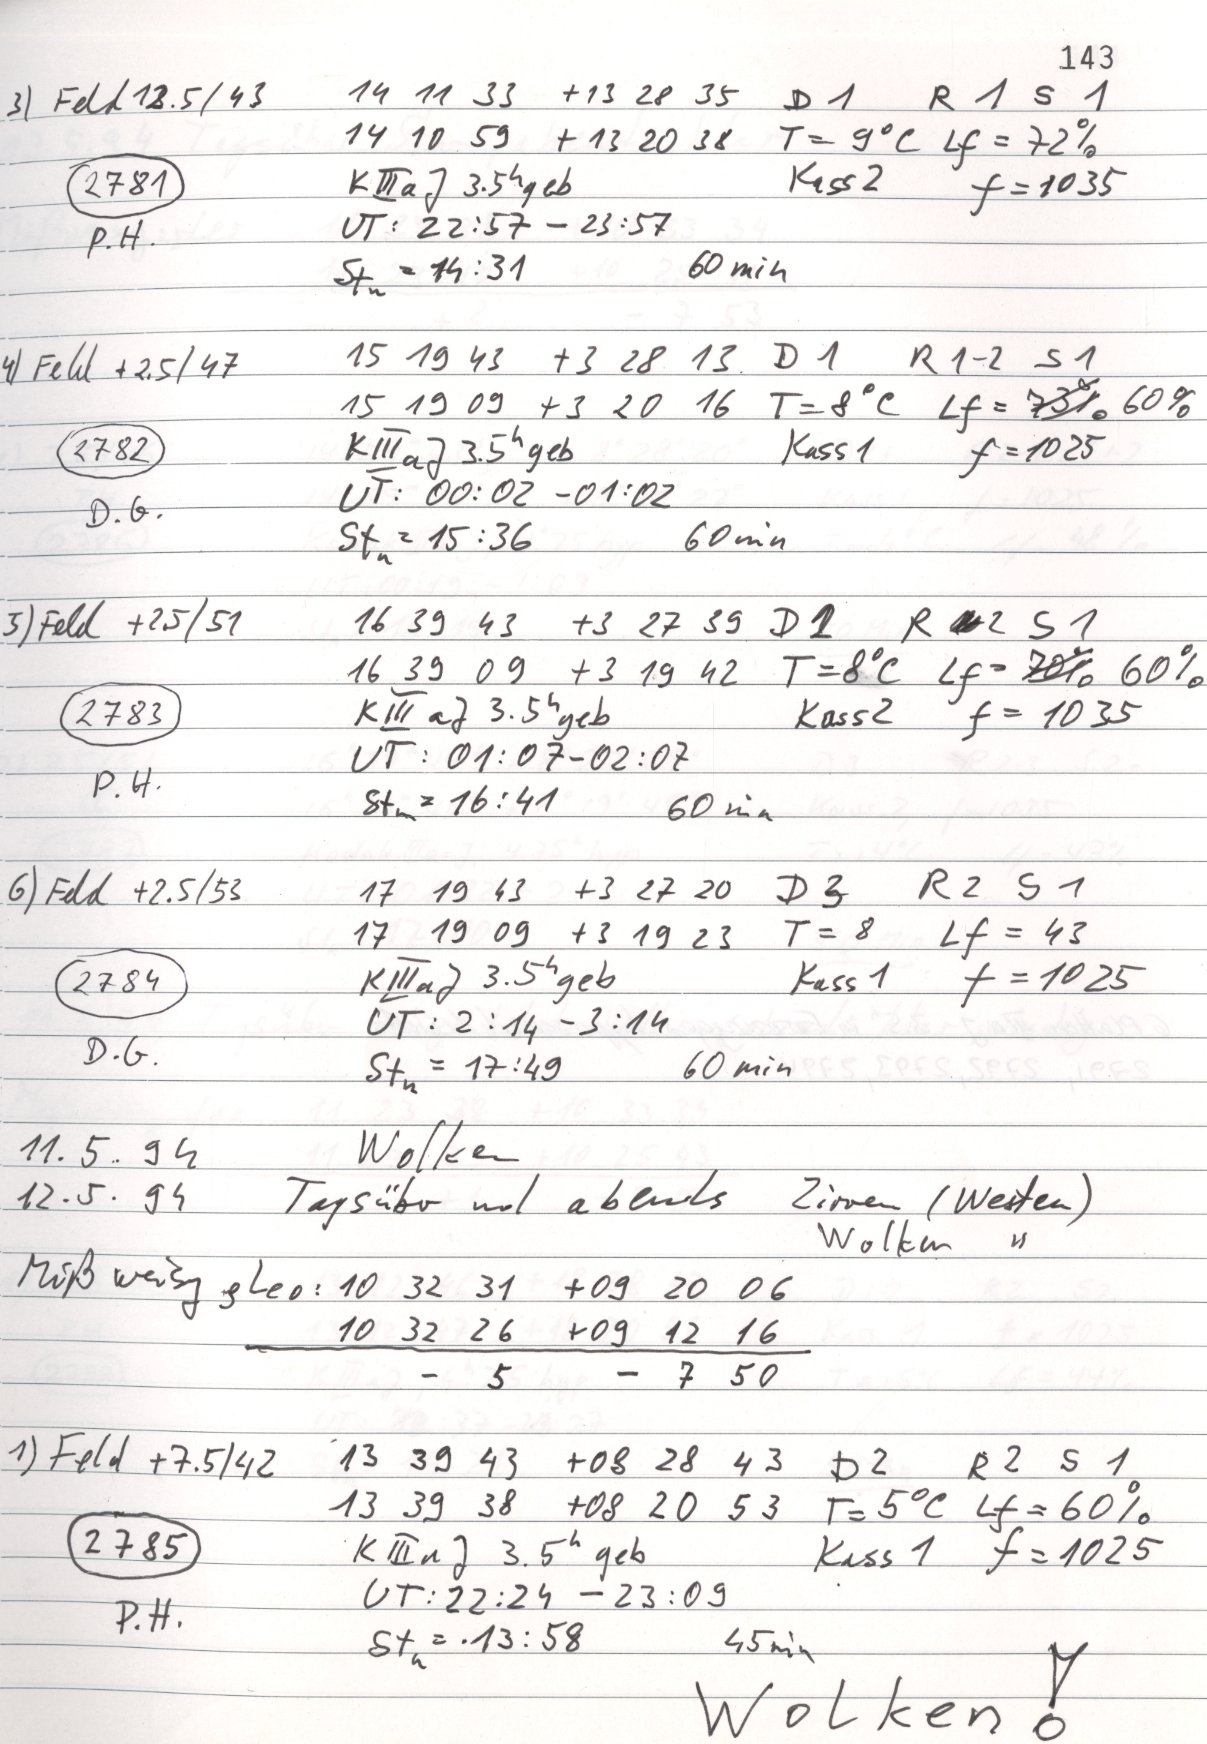 143
3) Feld 12.5/43 14 11 33 +13 28 35 D 1 R 1 S 1
14 10 59 +13 20 38 T = 9°C Lf = 72%
2781 K III a J 3.5h geb Kass 2 f = 1035
P.H. UT: 22:57 - 23:57
Stn = 14:31 60 min
4) Feld +2.5/47 15 19 43 +3 28 13 D 1 R 1-2 S 1
15 19 09 +3 20 16 T = 8°C Lf = 73% 60%
2782 K III a J 3.5h geb Kass 1 f = 1025
D.G. UT: 00:02 - 01:02
Stn = 15:36 60 min
5) Feld +2.5/51 16 39 43 +3 27 39 D R 2 S 1
16 39 09 +3 19 42 T = 8°C Lf = 70% 60%
2783 K III a J 3.5h geb Kass 2 f = 1035
P.H. UT: 01:07 - 02:07
Stn = 16:41 60 min
6) Feld +2.5/53 17 19 43 +3 27 20 D 3 R 2 S 1
17 19 09 +3 19 23 T = 8 Lf = 43
2784 K III a J 3.5h geb Kass 1 f = 1025
D.G. UT: 2:14 - 3:14
Stn = 17:49 60 min
11. 5. 94 Wolken
12. 5. 94 Tagsüber und abends Zirren (Westen)
Wolken "
Leo: 10 32 31 +09 20 06
10 32 26 +09 12 16
- 5 - 7 50
1) Feld +7.5/42 13 39 43 +08 28 43 D 2 R 2 S 1
13 39 38 +08 20 53 T = 5°C Lf = 60%
2785 K III a J 3.5h geb Kass 1 f = 1025
P.H. UT: 22:24 - 23:09
Stn = 13:58 45 min
Wolken!